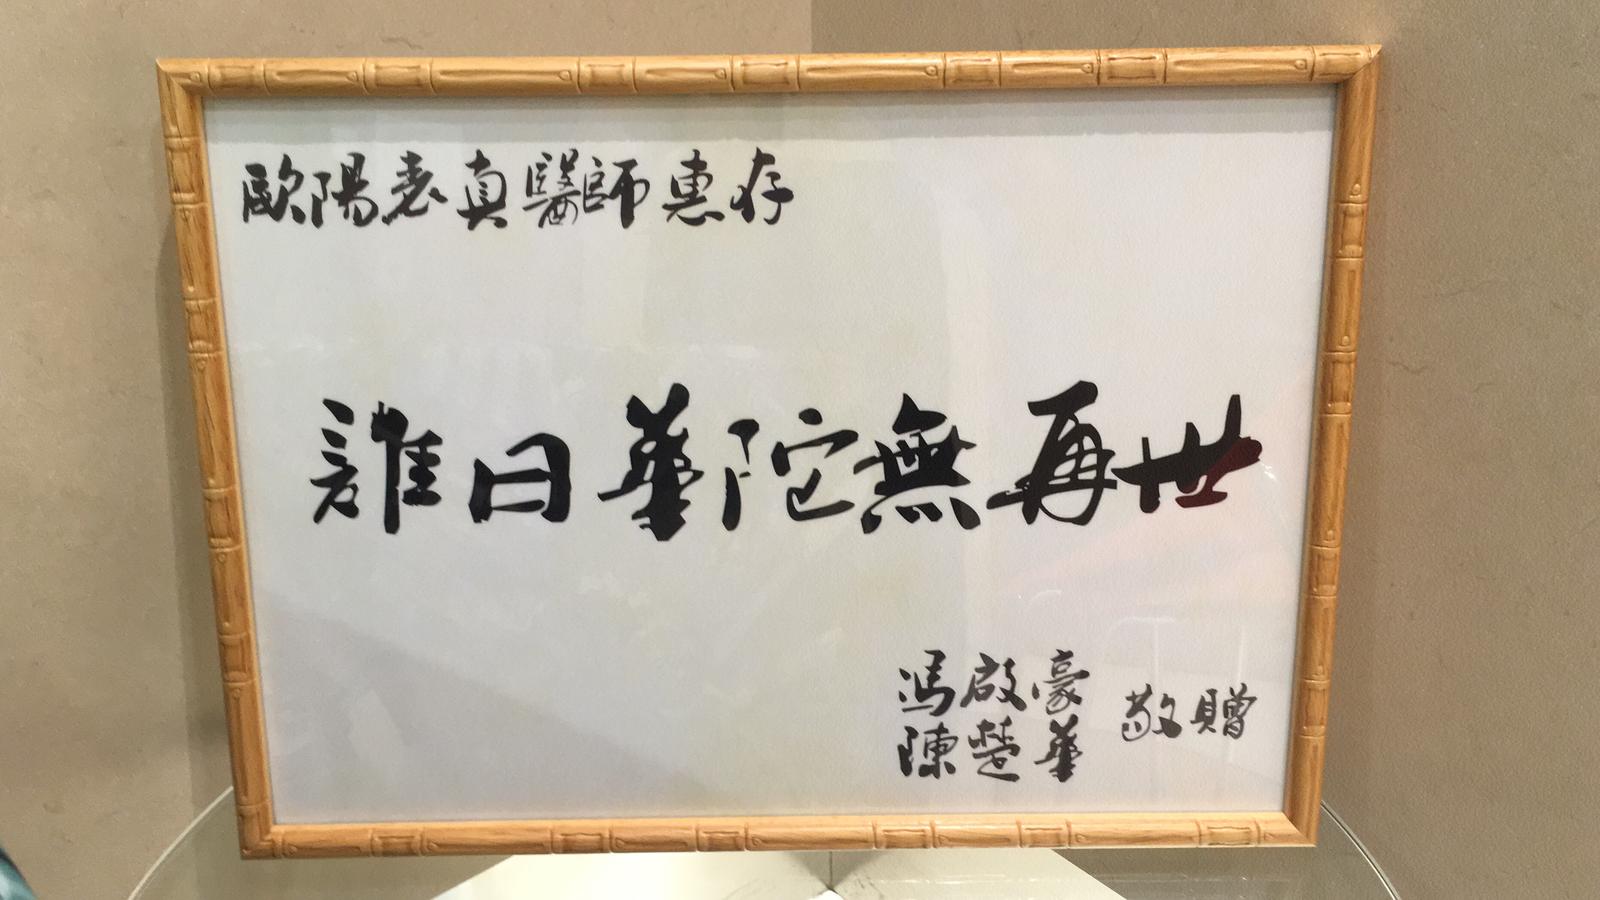 歐陽真醫師惠存
誰曰華陀無再世
馮啟豪
陳楚華
敬贈